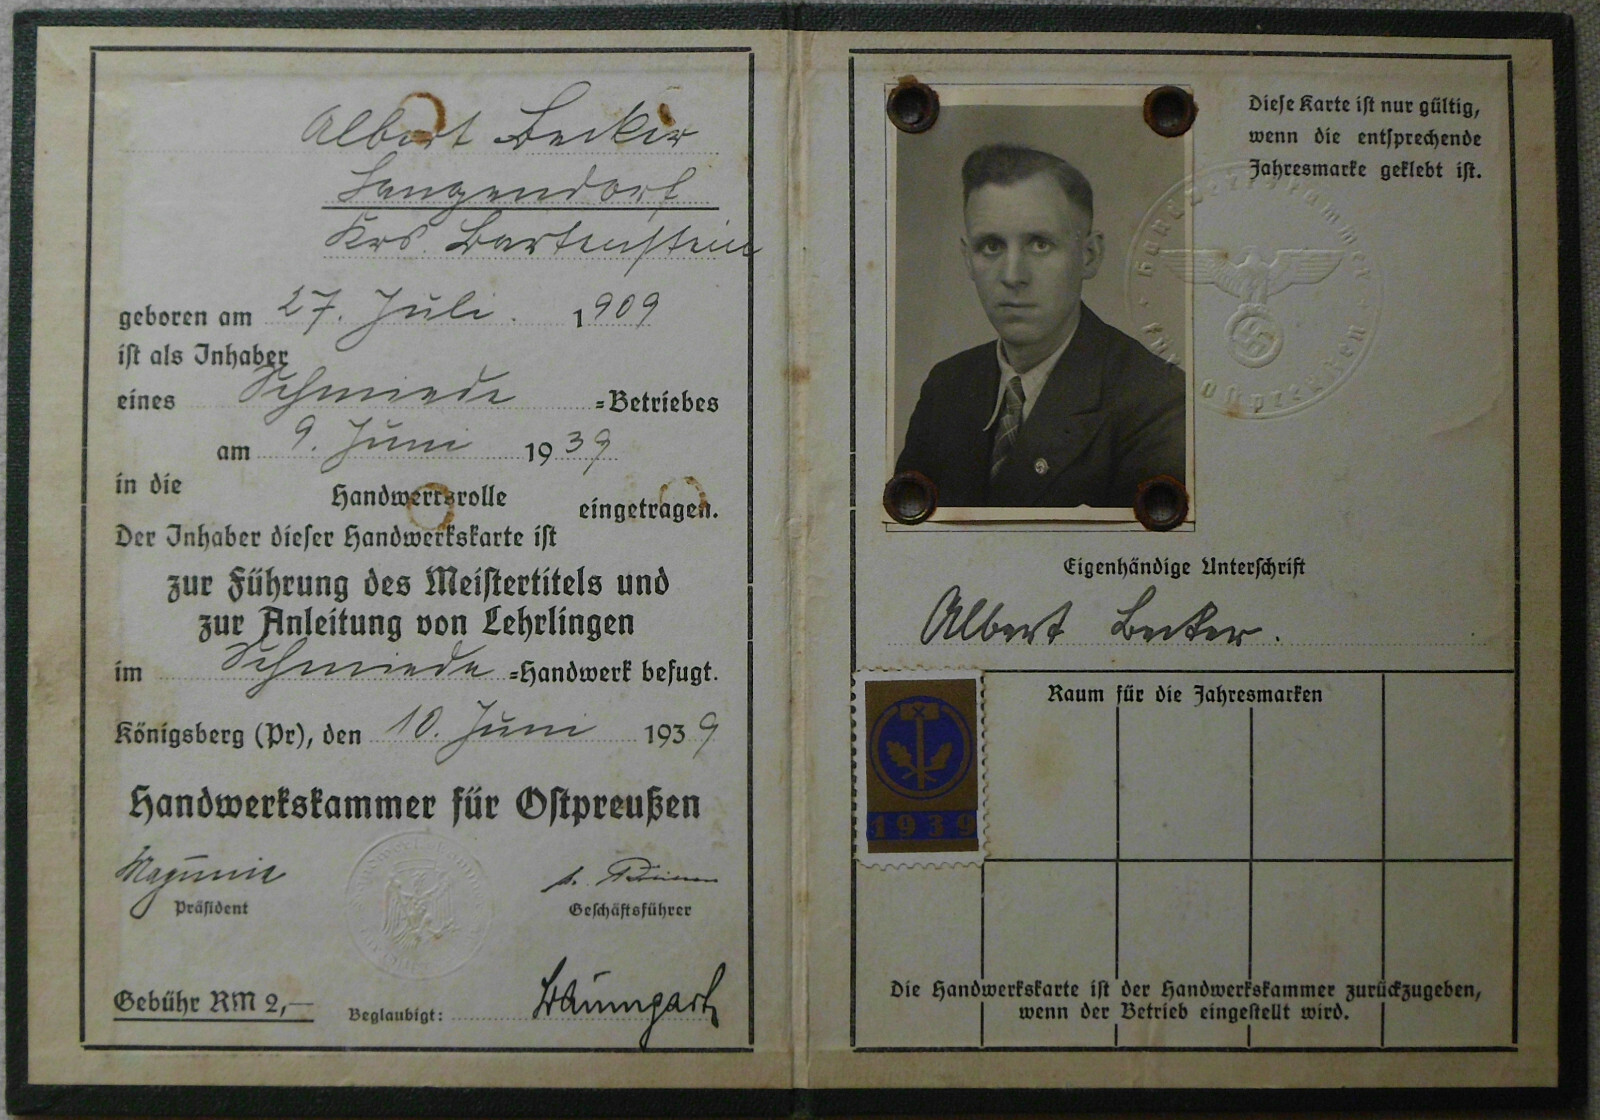 Albert Becker
Langendorf
Krs. Bartenstein
geboren am 27. Juli. 1909
ist als Inhaber
eines Schmiede =Betriebes
am 9. Juni 1939
in die Handwerksrolle eingetragen.
Der Inhaber dieser Handwerkskarte ist
zur Führung des Meistertitels und
zur Anleitung von Lehrlingen
im Schmiede =Handwerk befugt.
Königsberg (Pr), den 10. Juni 1939
Handwerkskammer für Ostpreußen
Magunia
Präsident
Geschäftsführer
Gebühr RM 2,—
Beglaubigt: Baumgart
Diese Karte ist nur gültig,
wenn die entsprechende
Jahresmarke geklebt ist.
Handwerkskammer
für Ostpreußen
Eigenhändige Unterschrift
Albert Becker.
Raum für die Jahresmarken
1939
Die Handwerkskarte ist der Handwerkskammer zurückzugeben,
wenn der Betrieb eingestellt wird.